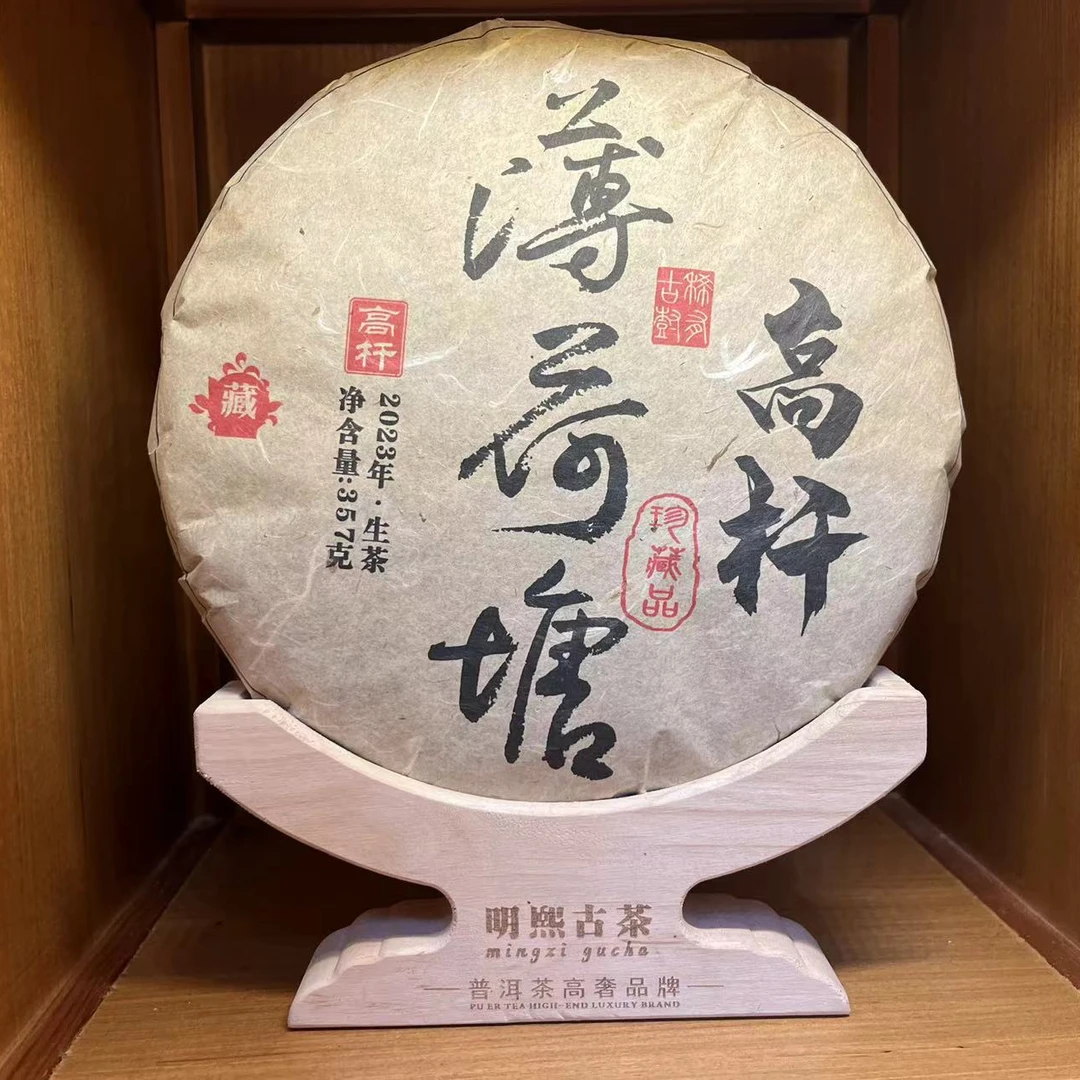 高杆
薄荷塘
稀有
古树
珍藏品
高杆
2023年·生茶
净含量:357克
藏
明熙古茶
mingzi gucha
普洱茶高奢品牌
PU ER TEA HIGH-END LUXURY BRAND